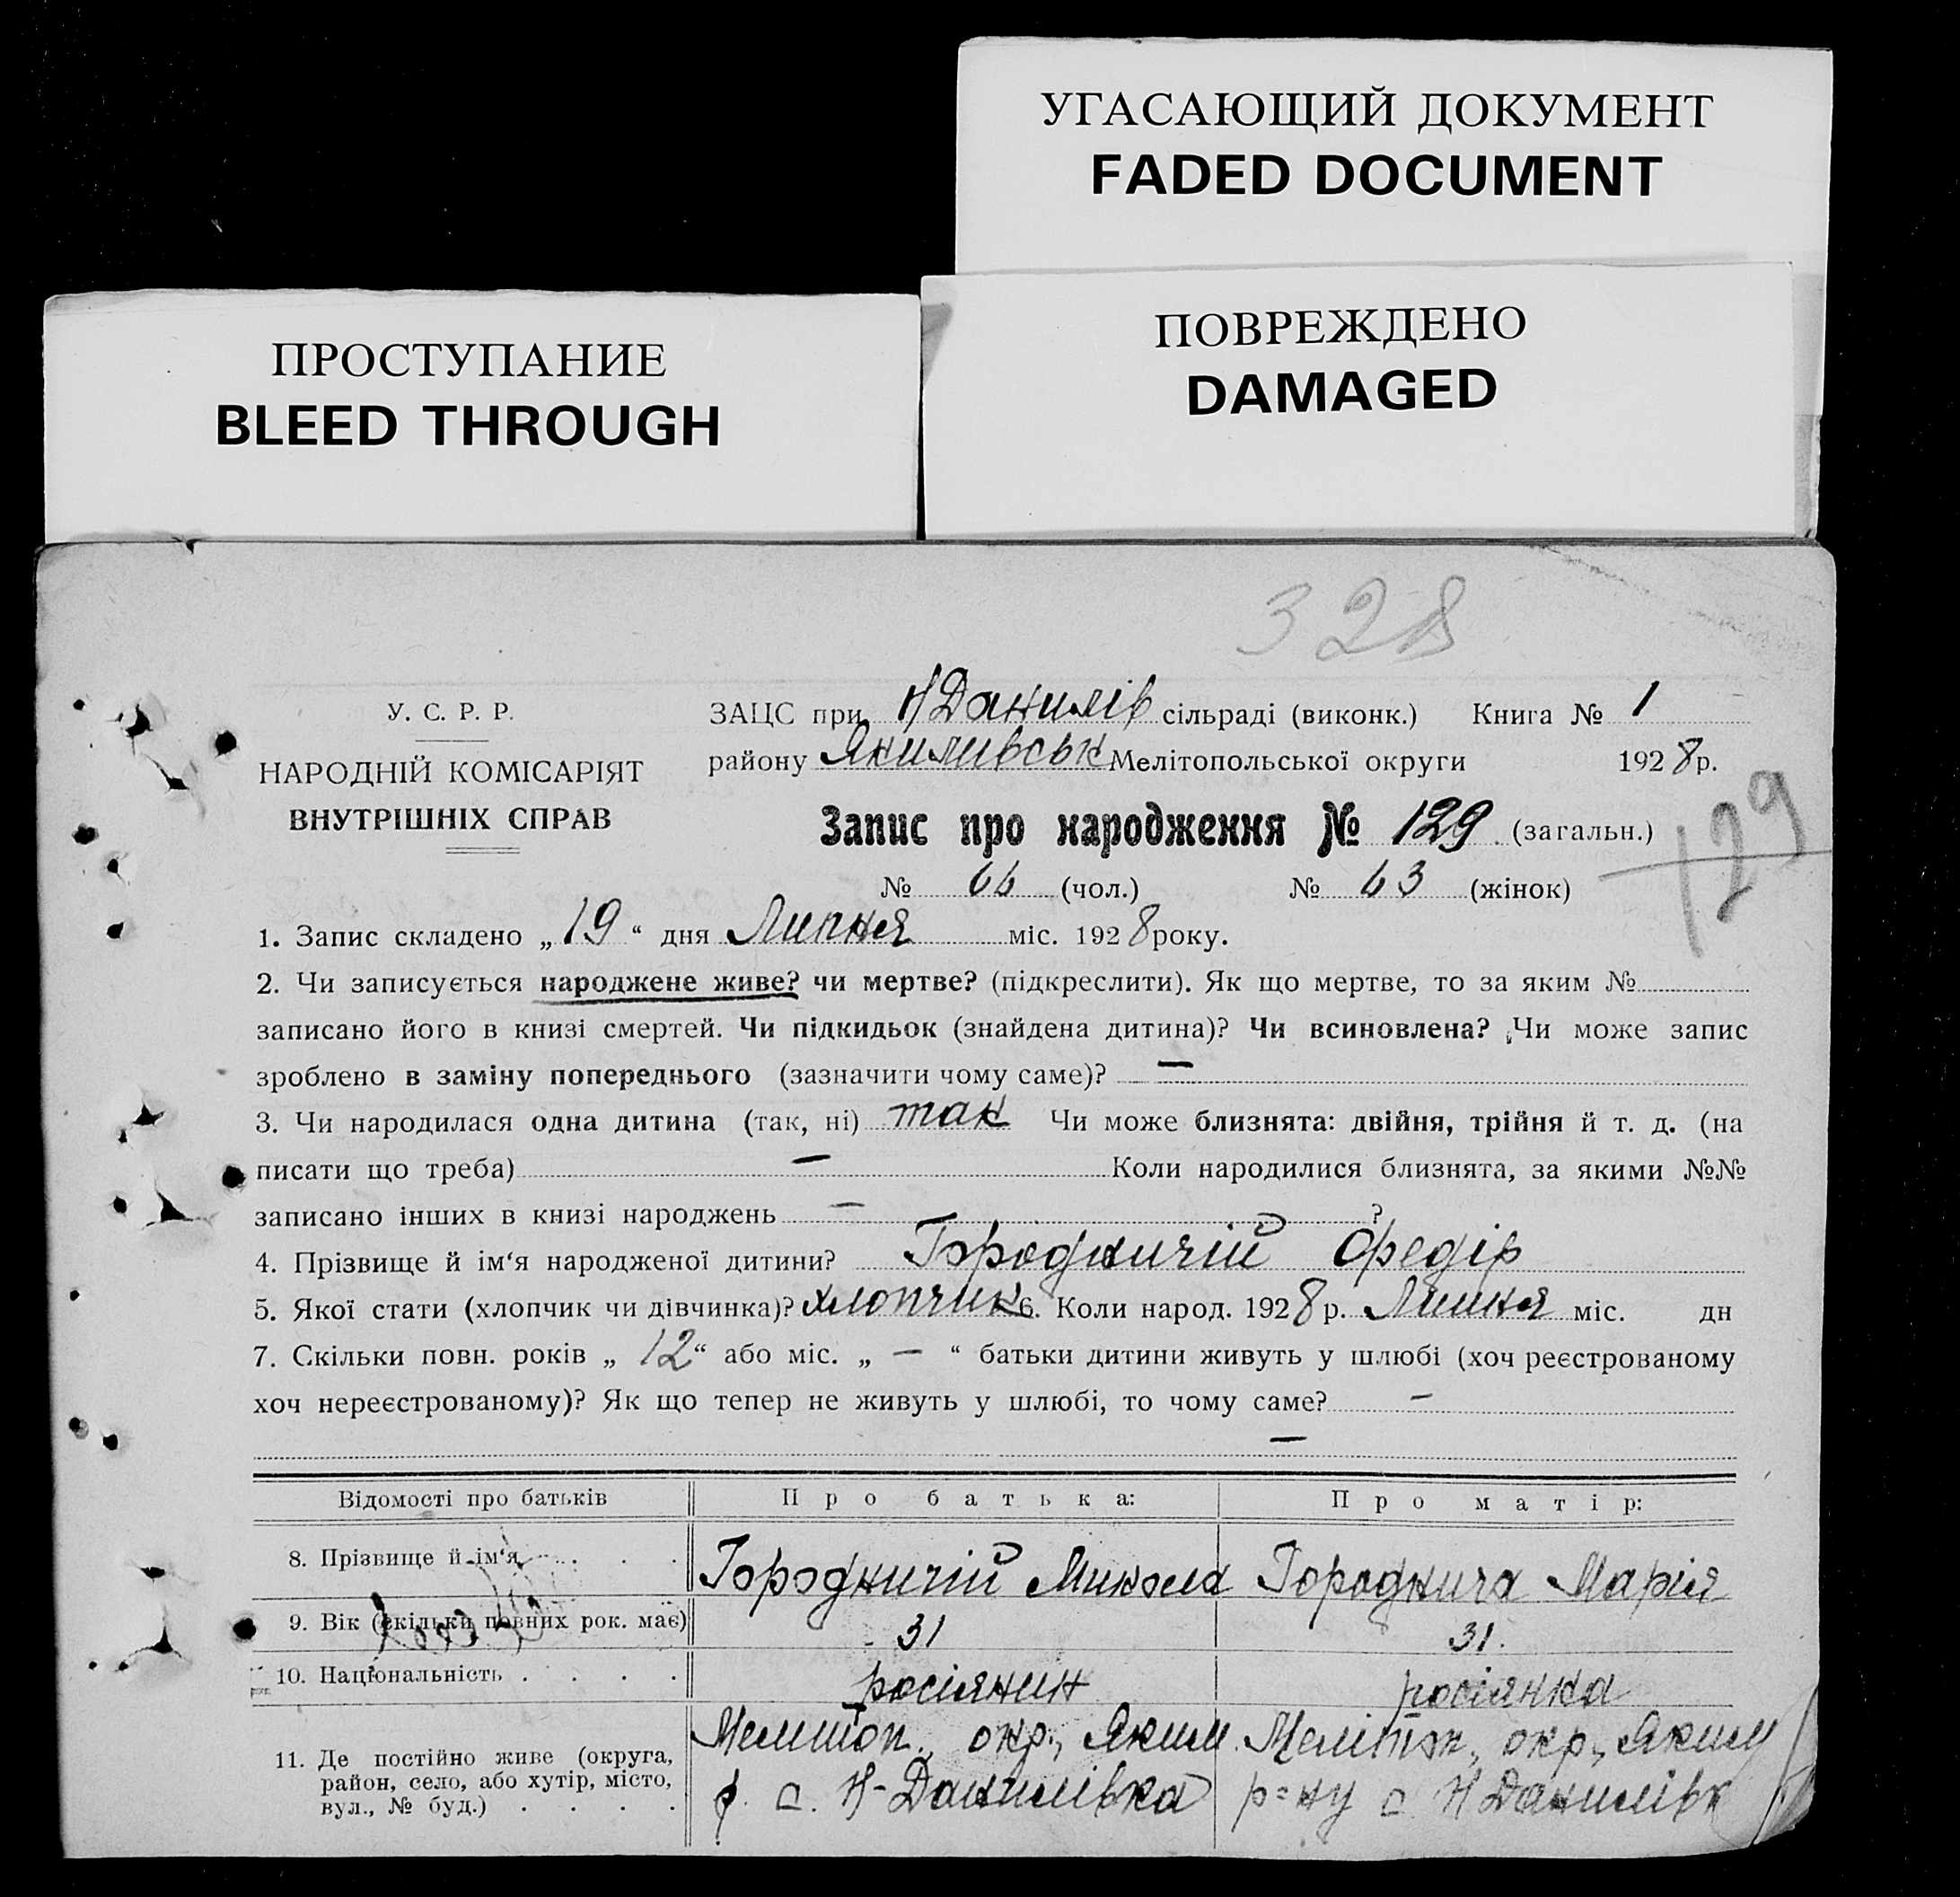 УГАСАЮЩИЙ ДОКУМЕНТ
FADED DOCUMENT
ПРОСТУПАНИЕ
BLEED THROUGH
ПОВРЕЖДЕНО
DAMAGED
328
У. С. Р. Р.
НАРОДНІЙ КОМІСАРІЯТ
ВНУТРІШНІХ СПРАВ
ЗАЦС при Н Данилів сільраді (виконк.) Книга № 1
району Якимивськ Мелітопольської округи 1928 р.
Запис про народження № 129 (загальн.)
129
№ 66 (чол.) № 63 (жінок)
1. Запис складено „19“ дня Липня міс. 1928 року.
2. Чи записується народжене живе? чи мертве? (підкреслити). Як що мертве, то за яким №
записано його в книзі смертей. Чи підкидьок (знайдена дитина)? Чи всиновлена? Чи може запис
зроблено в заміну попереднього (зазначити чому саме)? —
3. Чи народилася одна дитина (так, ні) так Чи може близнята: двійня, трійня й т. д. (на
писати що треба) — Коли народилися близнята, за якими №№
записано інших в книзі народжень — ?
4. Прізвище й ім‘я народженої дитини? Городничій Федір
5. Якої стати (хлопчик чи дівчинка)? хлопчик 6. Коли народ. 1928 р. Липня міс. дн
7. Скільки повн. років „12“ або міс. „—“ батьки дитини живуть у шлюбі (хоч реєстрованому
хоч нереєстрованому)? Як що тепер не живуть у шлюбі, то чому саме? —
—
Відомості про батьків Про батька: Про матір:
8. Прізвище й ім‘я . . . Городничій Микола Городнича Марія
9. Вік (скільки повних рок. має) 31 31.
10. Національність . . . . росіянин росіянка
11. Де постійно живе (округа, Мелитоп. окр., Яким. Мелітоп., окр., Яким
район, село, або хутір, місто, р. с. Н-Данилівка р=ну с. Н Данилівк
вул., № буд.) . . . .